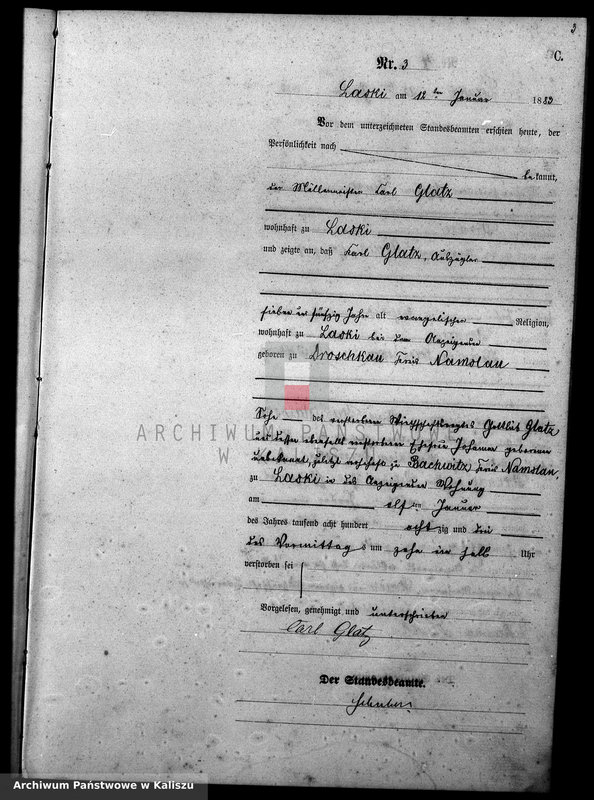 3
C.
Nr. 3
Laski am 12ten Januar 1883
Vor dem unterzeichneten Standesbeamten erschien heute, der
Persönlichkeit nach
bekannt,
der Müllermeister Carl Glatz
wohnhaft zu Laski
und zeigte an, daß Carl Glatz, Auszügler
sieben und fünfzig Jahr alt evangelischer Religion,
wohnhaft zu Laski bei dem Anzeigenden
geboren zu Droschkau Kreis Namslau
Sohn des verstorbenen Gottlieb Glatz
und dessen ebenfalls verstorbenen Ehefrau Johanna geborene
unbekannt, zuletzt wohnhaft zu Bachwitz Kreis Namslau,
zu Laski in des Anzeigenden Wohnung
am elften Januar
des Jahres tausend acht hundert achtzig und drei
des Vormittags um zehn ein halb Uhr
verstorben sei
Vorgelesen, genehmigt und unterschrieben
Carl Glatz
Der Standesbeamte.
ARCHIWUM PAŃSTWOWE
W KALISZU
Archiwum Państwowe w Kaliszu